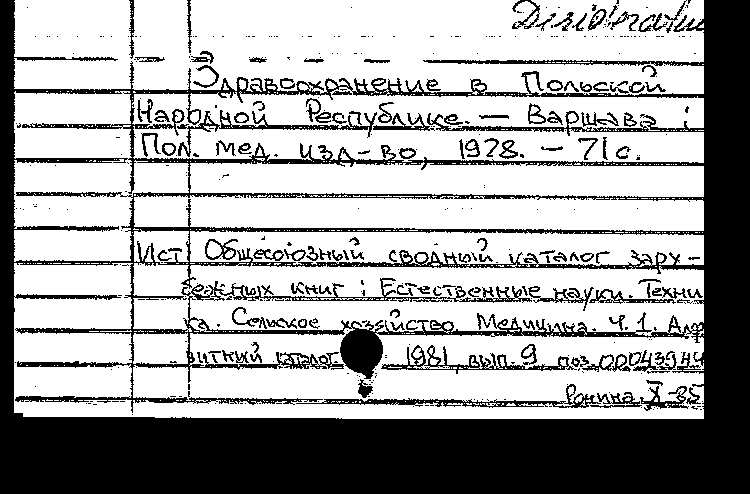 Desiderata
Здравоохранение в Польской
Народной Республике. — Варшава :
Пол. мед. изд-во, 1978. — 71 с.
Ист. Общесоюзный сводный каталог зару-
бежных книг : Естественные науки. Техни
ка. Сельское хозяйство. Медицина. Ч. 1. Алф
витный каталог 1981, вып. 9, поз. 00043944
Ронина X-85